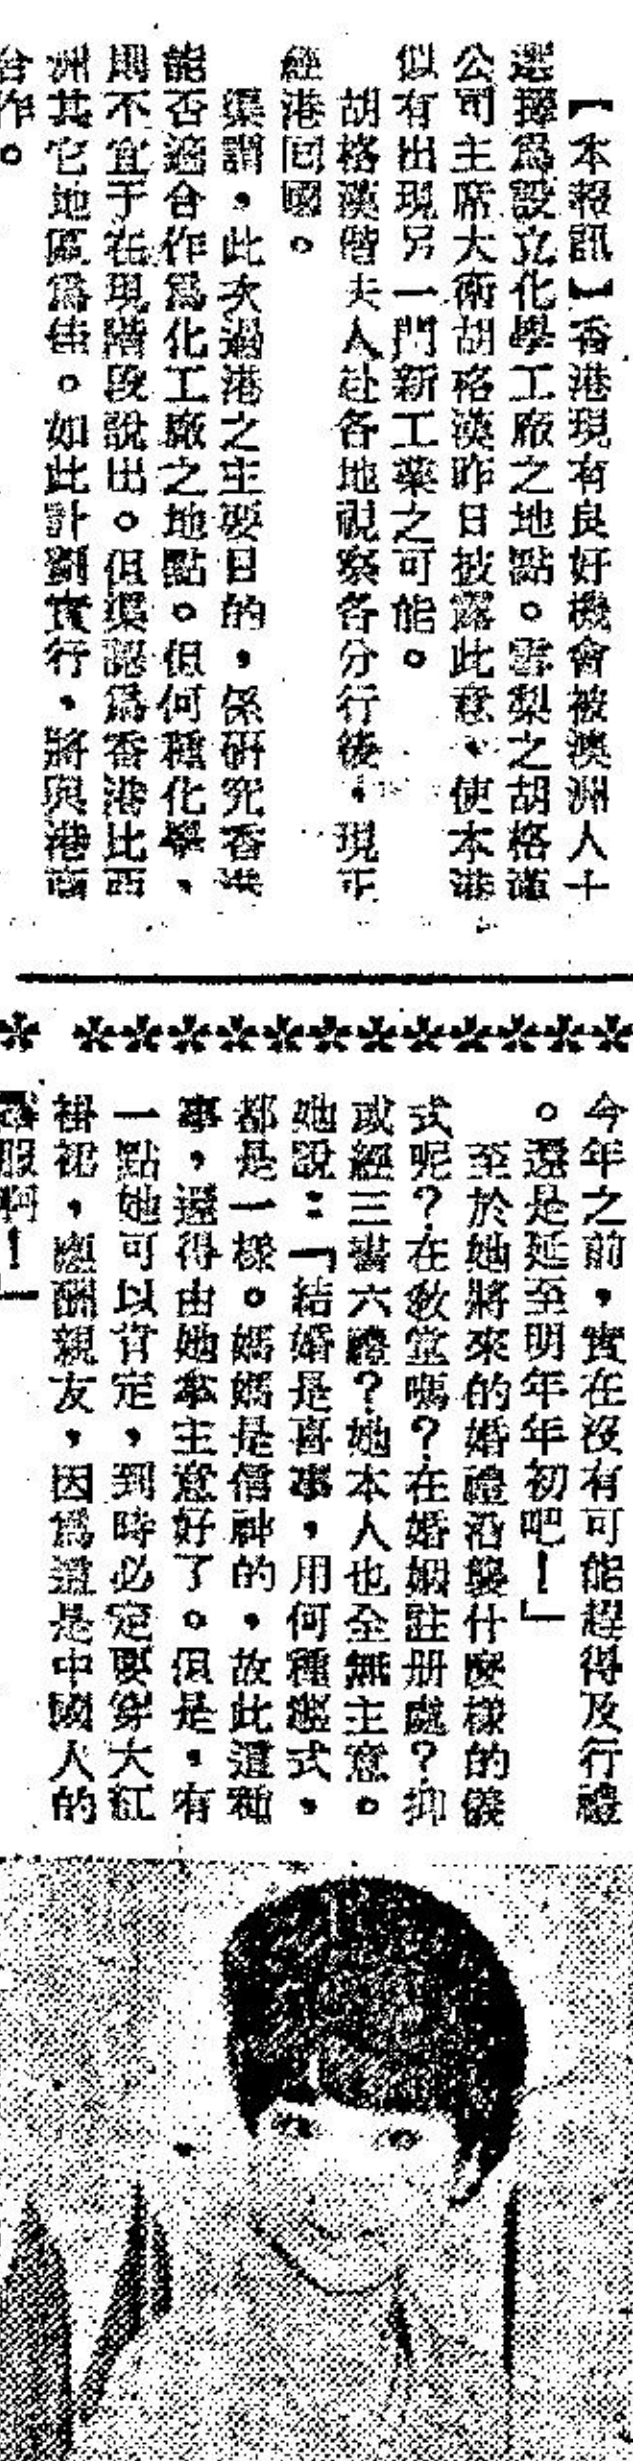 【本報訊】香港現有良好機會被澳洲人士
選擇爲設立化學工廠之地點。雪梨之胡格漢
公司主席大衛胡格漢昨日披露此意、使本港
似有出現另一門新工業之可能。
胡格漢偕夫人赴各地視察各分行後，現正
經港回國。
渠謂，此次過港之主要目的，係研究香港
能否適合作爲化工廠之地點。但何種化學，
則不宜于在現階段說出。但渠認爲香港比亞
洲其它地區爲佳。如此計劃實行，將與港商
合作。
今年之前，實在沒有可能趕得及行禮
。還是延至明年年初吧！」
至於她將來的婚禮沿襲什麼樣的儀
式呢？在敎堂嗎？在婚姻註册處？抑
或經三書六禮？她本人也全無主意。
她說：「結婚是喜事，用何種儀式，
都是一樣。媽媽是信神的，故此這種
事，還得由她拿主意好了。但是，有
一點她可以肯定，到時必定要穿大紅
褂裙，應酬親友，因爲這是中國人的
服啊！」